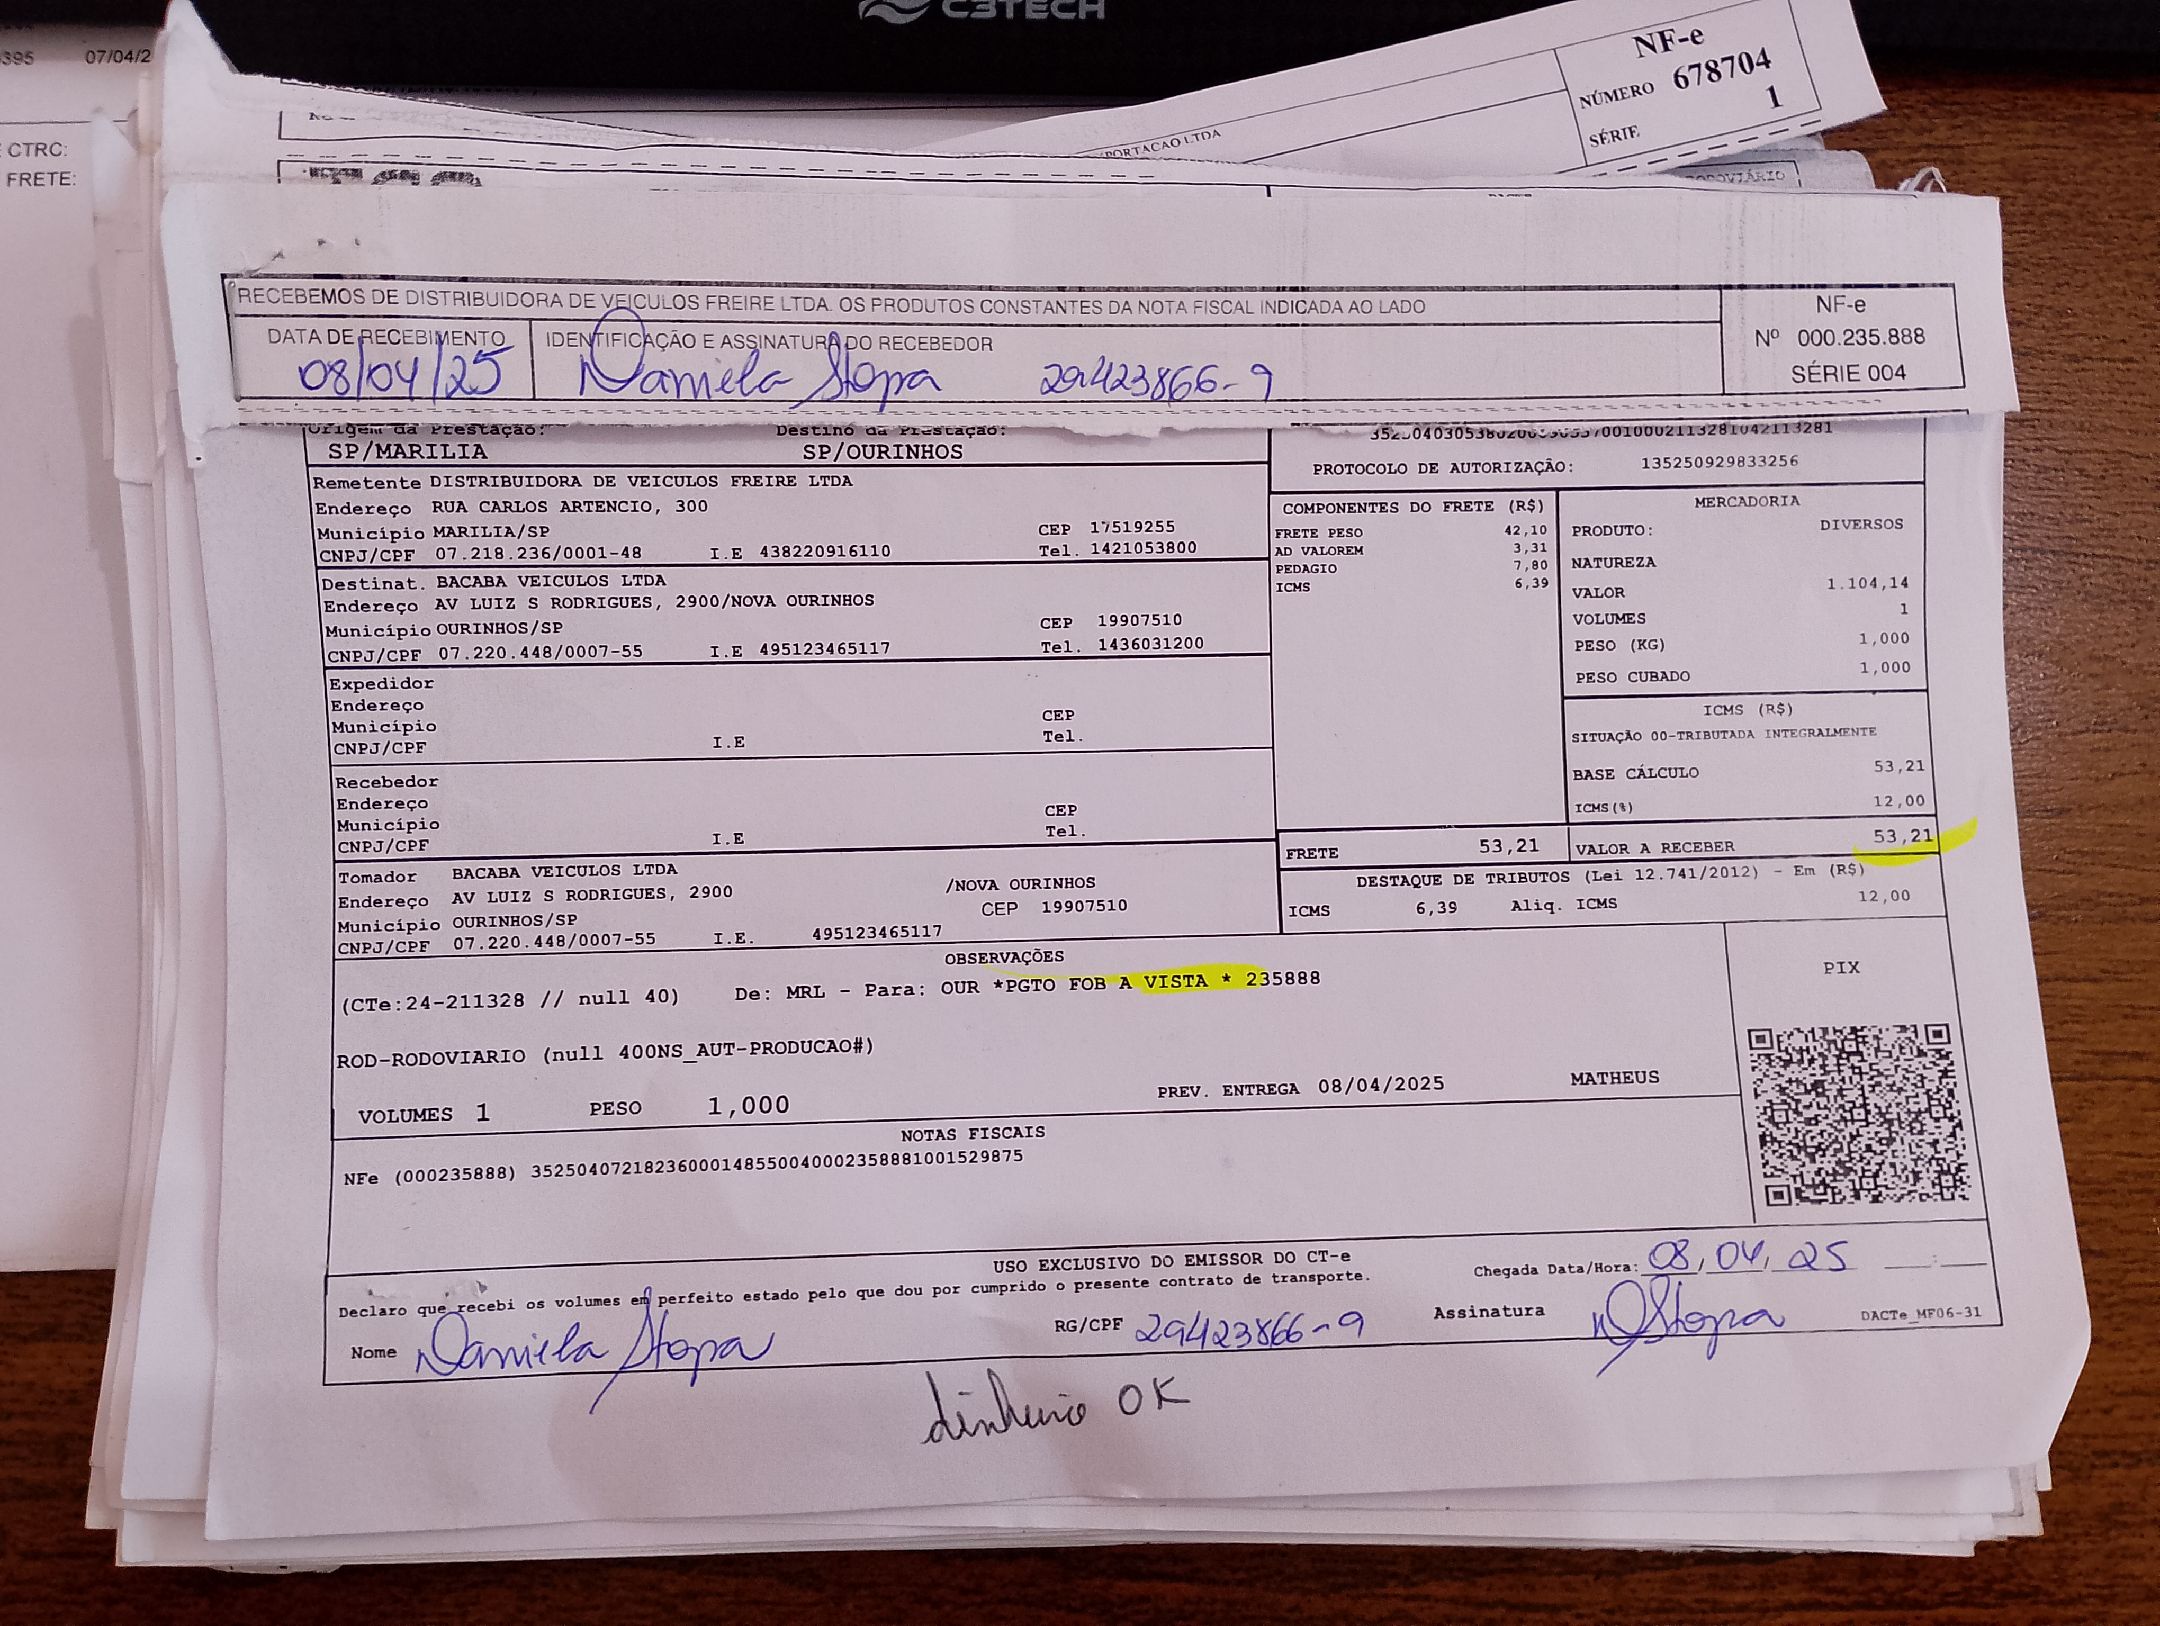 C3TECH
395 07/04/2
CTRC:
FRETE:
NF-e
NÚMERO 678704
SÉRIE 1
PORTACAO LTDA
RODOVIÁRIO
RECEBEMOS DE DISTRIBUIDORA DE VEICULOS FREIRE LTDA. OS PRODUTOS CONSTANTES DA NOTA FISCAL INDICADA AO LADO
DATA DE RECEBIMENTO
08/04/25
IDENTIFICAÇÃO E ASSINATURA DO RECEBEDOR
Daniela Stopa 29423866-9
NF-e
Nº 000.235.888
SÉRIE 004
Origem da Prestação: Destino da Prestação:
SP/MARILIA SP/OURINHOS
Remetente DISTRIBUIDORA DE VEICULOS FREIRE LTDA
Endereço RUA CARLOS ARTENCIO, 300
Município MARILIA/SP CEP 17519255
CNPJ/CPF 07.218.236/0001-48 I.E 438220916110 Tel. 1421053800
Destinat. BACABA VEICULOS LTDA
Endereço AV LUIZ S RODRIGUES, 2900/NOVA OURINHOS
Município OURINHOS/SP CEP 19907510
CNPJ/CPF 07.220.448/0007-55 I.E 495123465117 Tel. 1436031200
Expedidor
Endereço
Município CEP
CNPJ/CPF I.E Tel.
Recebedor
Endereço
Município CEP
CNPJ/CPF I.E Tel.
Tomador BACABA VEICULOS LTDA
Endereço AV LUIZ S RODRIGUES, 2900 /NOVA OURINHOS
Município OURINHOS/SP CEP 19907510
CNPJ/CPF 07.220.448/0007-55 I.E. 495123465117
PROTOCOLO DE AUTORIZAÇÃO: 135250929833256
COMPONENTES DO FRETE (R$)
FRETE PESO 42,10
AD VALOREM 3,31
PEDAGIO 7,80
ICMS 6,39
MERCADORIA
PRODUTO: DIVERSOS
NATUREZA
VALOR 1.104,14
VOLUMES 1
PESO (KG) 1,000
PESO CUBADO 1,000
ICMS (R$)
SITUAÇÃO 00-TRIBUTADA INTEGRALMENTE
BASE CÁLCULO 53,21
ICMS(%) 12,00
FRETE 53,21 VALOR A RECEBER 53,21
DESTAQUE DE TRIBUTOS (Lei 12.741/2012) - Em (R$)
ICMS 6,39 Aliq. ICMS 12,00
OBSERVAÇÕES
(CTe:24-211328 // null 40) De: MRL - Para: OUR *PGTO FOB A VISTA * 235888
ROD-RODOVIARIO (null 400NS_AUT-PRODUCAO#)
VOLUMES 1 PESO 1,000 PREV. ENTREGA 08/04/2025 MATHEUS
PIX
NOTAS FISCAIS
NFe (000235888) 35250407218236000148550040002358881001529875
USO EXCLUSIVO DO EMISSOR DO CT-e
Declaro que recebi os volumes em perfeito estado pelo que dou por cumprido o presente contrato de transporte.
Chegada Data/Hora: 08,04,25 __:__
Nome Daniela Stopa RG/CPF 29423866-9 Assinatura DStopa
DACTe_MF06-31
dinheiro OK